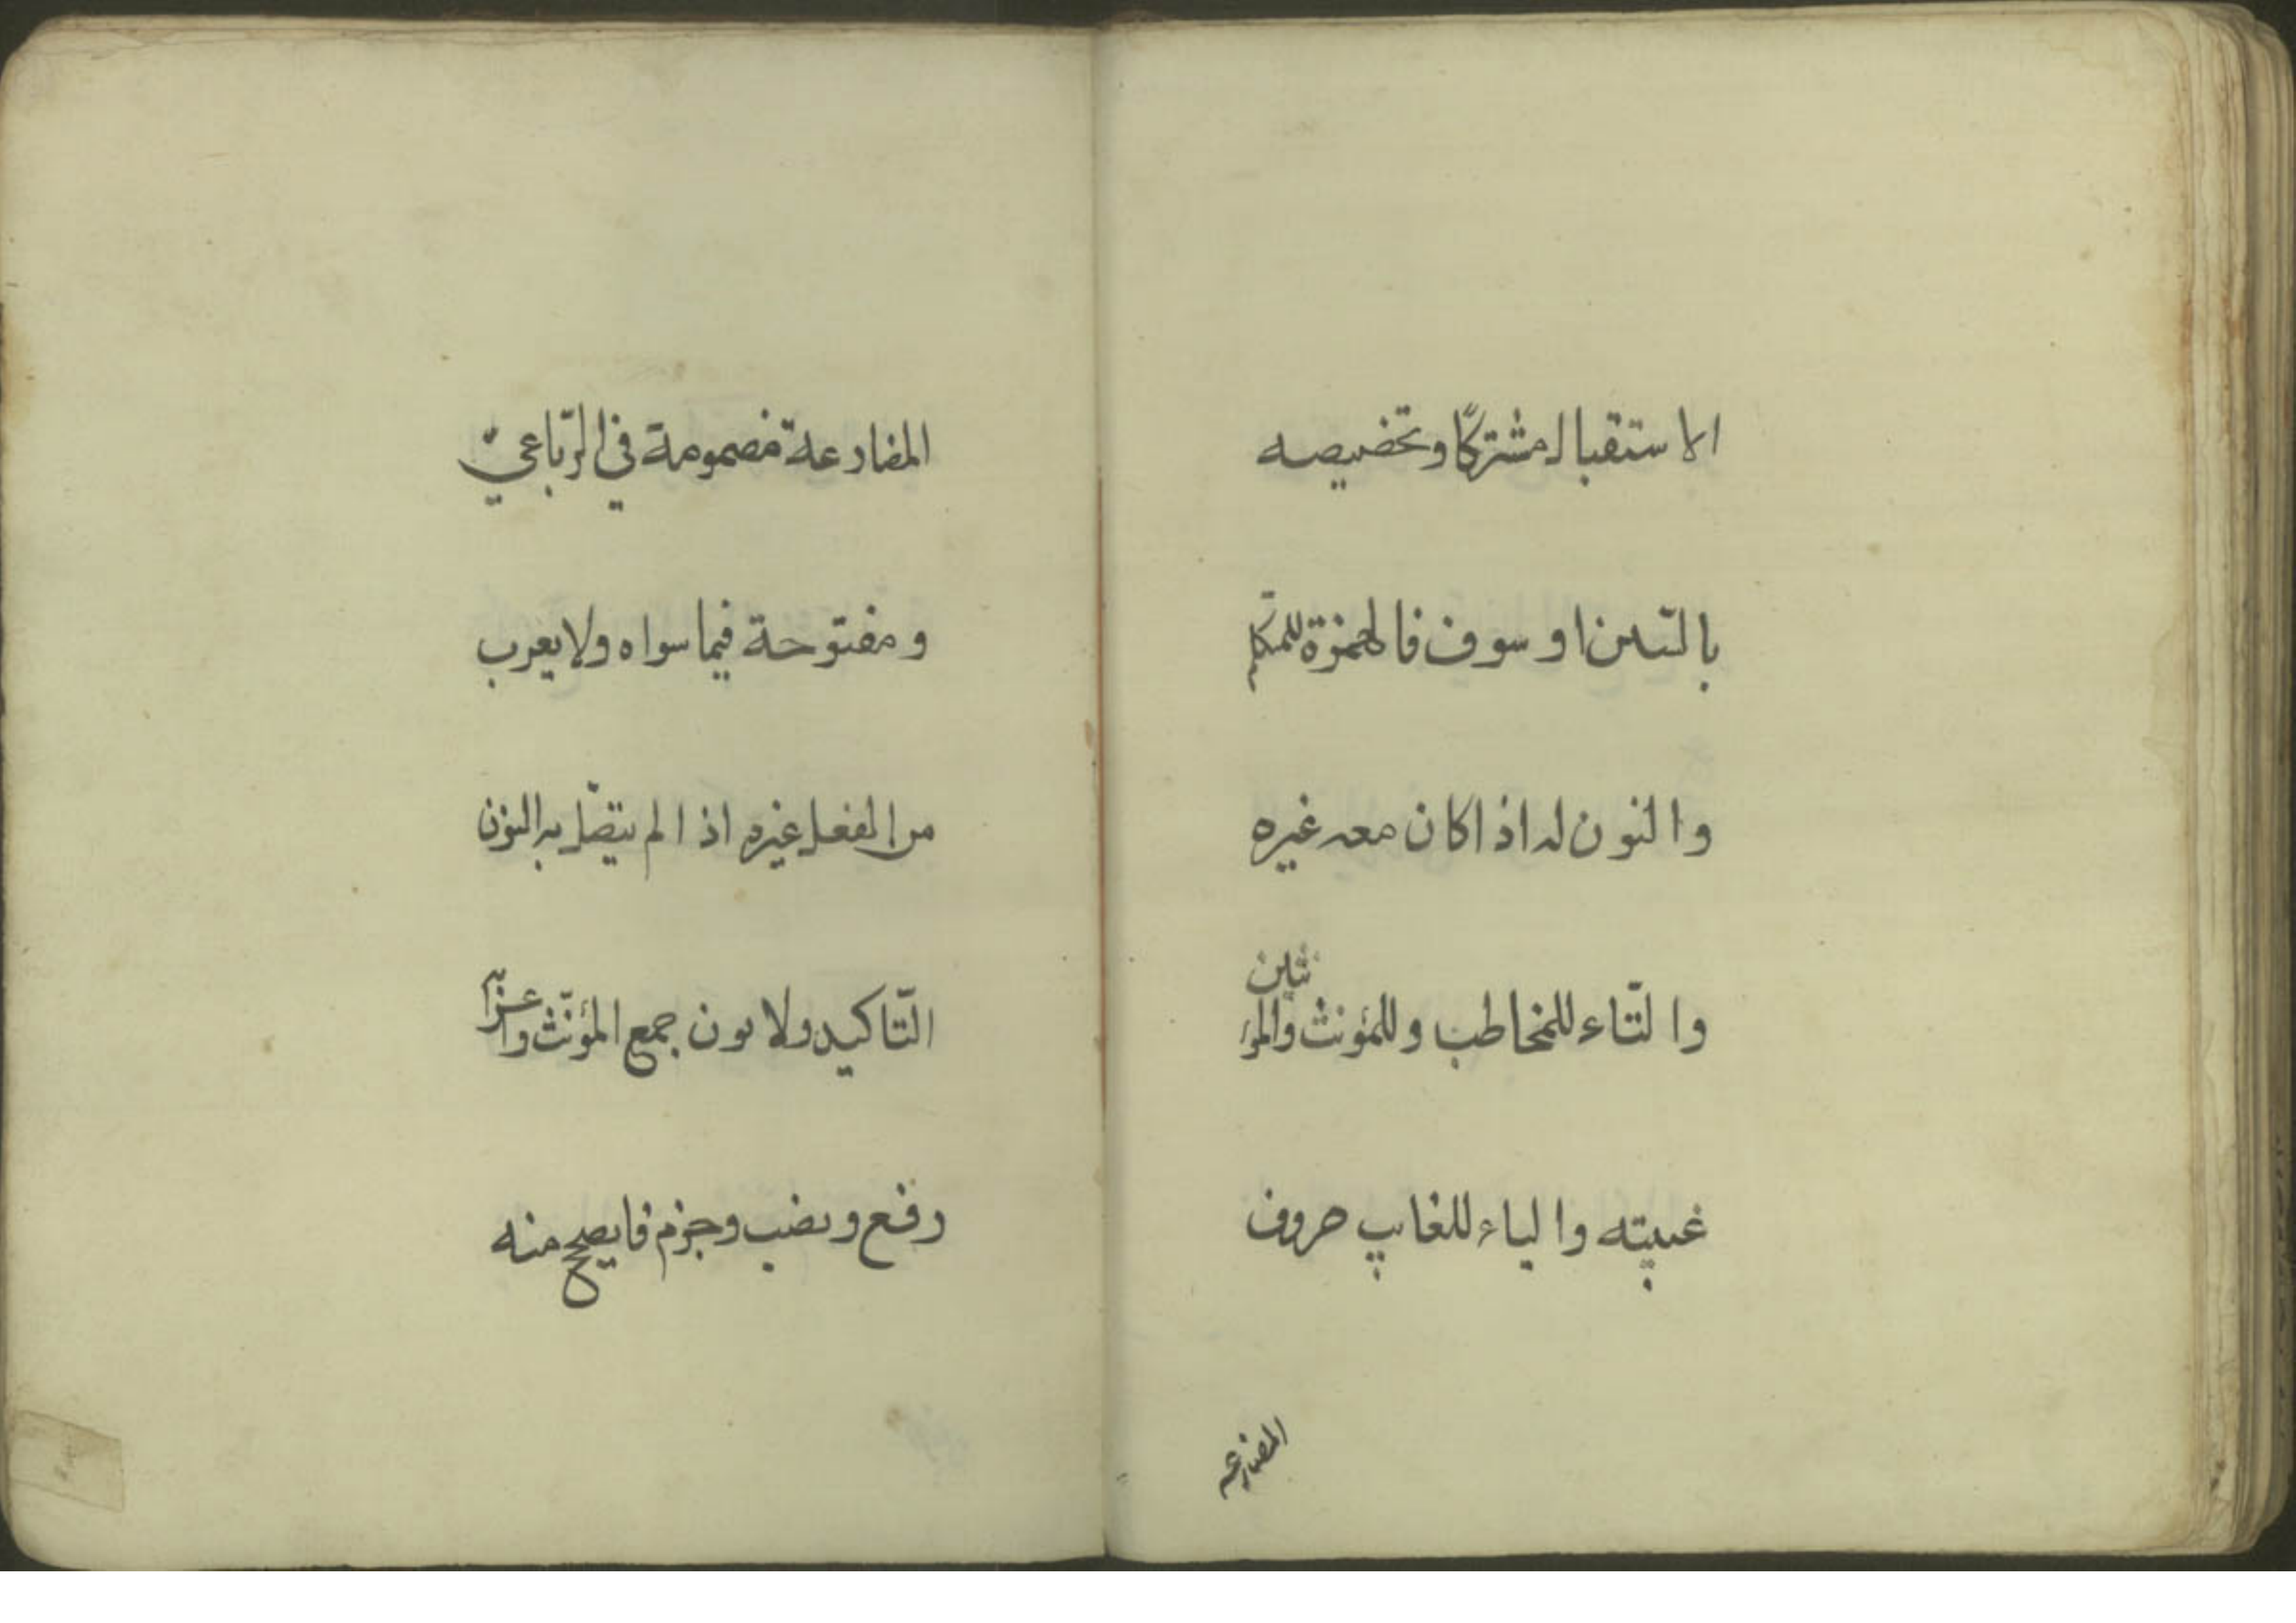 الاستقبال مشتركًا وتخصيصه
بالسّين او سوف فالهمزة للمتكلم
والنون له اذا كان معه غيره
والتّاء للمخاطب وللمؤنث والمؤنثين
غيبته والياء للغايب حروف
المضارعه
المضارعة مضمومة في الرّباعيّ
ومفتوحة فيما سواه ولا يعرب
من الفعل غيره اذا لم يتصّل به النون
التّاكيد ولا نون جمع المؤنّث واعرابه
رفع ونصب وجزم فايصحيح منه